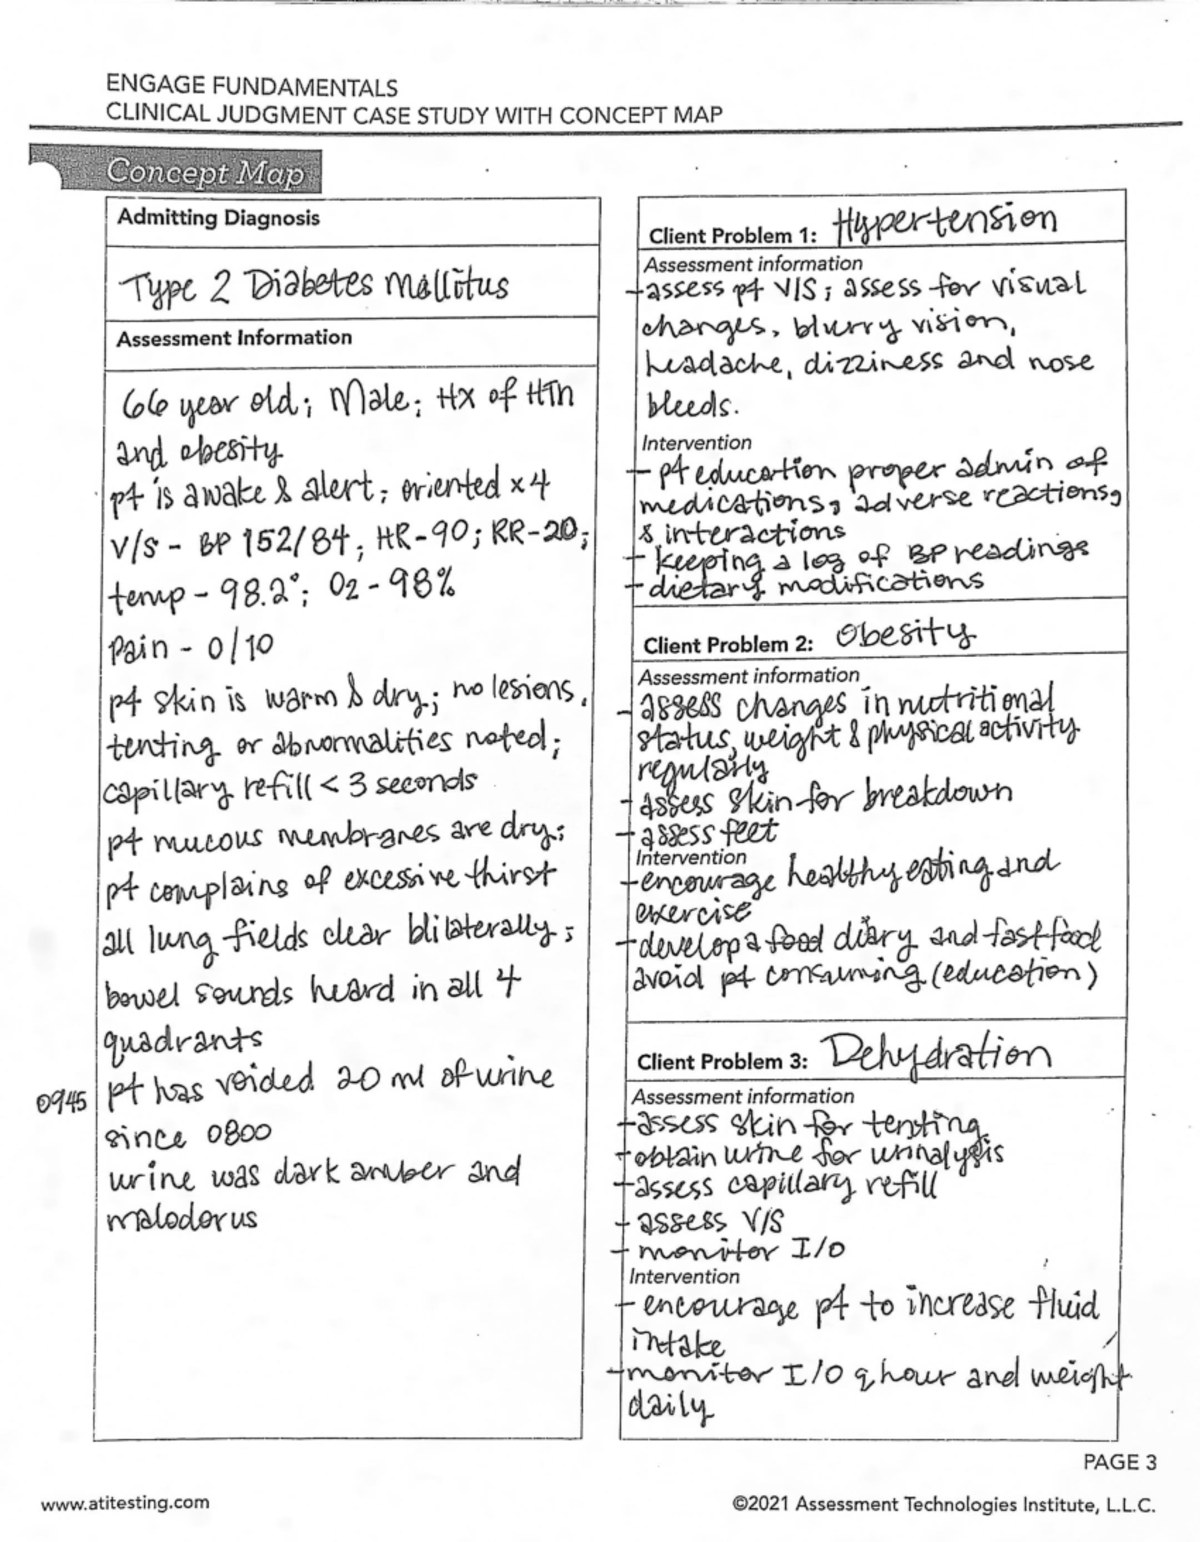 ENGAGE FUNDAMENTALS
CLINICAL JUDGMENT CASE STUDY WITH CONCEPT MAP
Concept Map
Admitting Diagnosis
Type 2 Diabetes Mellitus
Assessment Information
66 year old; Male; Hx of HTN
and obesity
pt is awake & alert; oriented x4
V/S - BP 152/84; HR-90; RR-20;
temp - 98.2°; O2 - 98%
Pain - 0/10
pt skin is warm & dry; no lesions,
tenting or abnormalities noted;
capillary refill < 3 seconds
pt mucous membranes are dry;
pt complains of excessive thirst
all lung fields clear blilaterally;
bowel sounds heard in all 4
quadrants
0945 pt has voided 20 ml of urine
since 0800
urine was dark amber and
malodorus
Client Problem 1: Hypertension
Assessment information
- assess pt V/S; assess for visual
changes, blurry vision,
headache, dizziness and nose
bleeds.
Intervention
- pt education proper admin of
medications, adverse reactions,
& interactions
- keeping a log of BP readings
- dietary modifications
Client Problem 2: Obesity
Assessment information
- assess changes in nutritional
status, weight & physical activity
regularly
- assess skin for breakdown
- assess feet
Intervention
- encourage healthy eating and
exercise
- develop a food diary and fast food
avoid pt consuming (education)
Client Problem 3: Dehydration
Assessment information
- assess skin for tenting
- obtain urine for urinalysis
- assess capillary refill
- assess V/S
- monitor I/O
Intervention
- encourage pt to increase fluid
intake
- monitor I/O q hour and weight
daily
PAGE 3
www.atitesting.com
©2021 Assessment Technologies Institute, L.L.C.